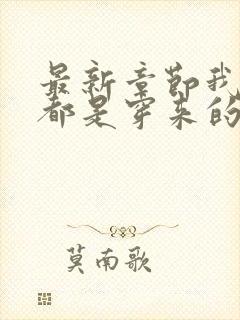 最新章节我
都是穿来的
莫南歌